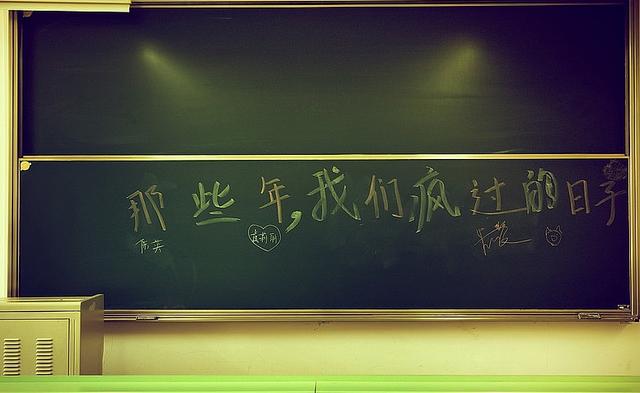 那些年,我们疯过的日子